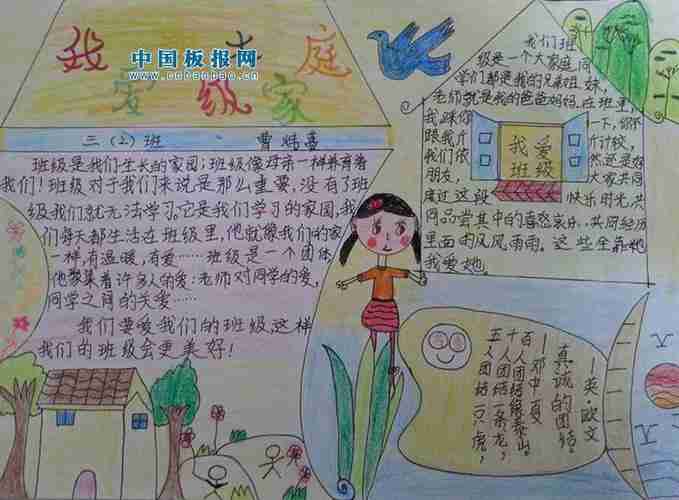 我 大 庭
爱 级 家
中国板报网
www.cnbanbao.cn
三(2)班
班级是我们生长的家园;班级像母亲一样养育着
我们!班级对于我们来说是那么重要,没有了班
级我们就无法学习。它是我们学习的家园,我
们每天都生活在班级里,他就像我们的家
一样有温暖,有爱……班级是一个团体
他聚集着许多人的爱:老师对同学的爱,
同学之间的关爱……
我们要爱我们的班级,这样
我们的班级会更美好!
我们班
级是一个大家庭,同
学们都是我的兄弟姐妹,
老师就是我的爸爸妈妈,在班里,
我 一下,你不
跟我计 计较,
我们依 然还是好
朋友, 大家共同
度过这段 快乐时光,共
同品尝其中的喜怒哀乐,共同经历
里面的风风雨雨。这些全靠她
我爱她
我爱
班级
五人团结一只虎,
十人团结一条龙,
百人团结像泰山。
——邓中夏
真诚的团结。
——英·欧文